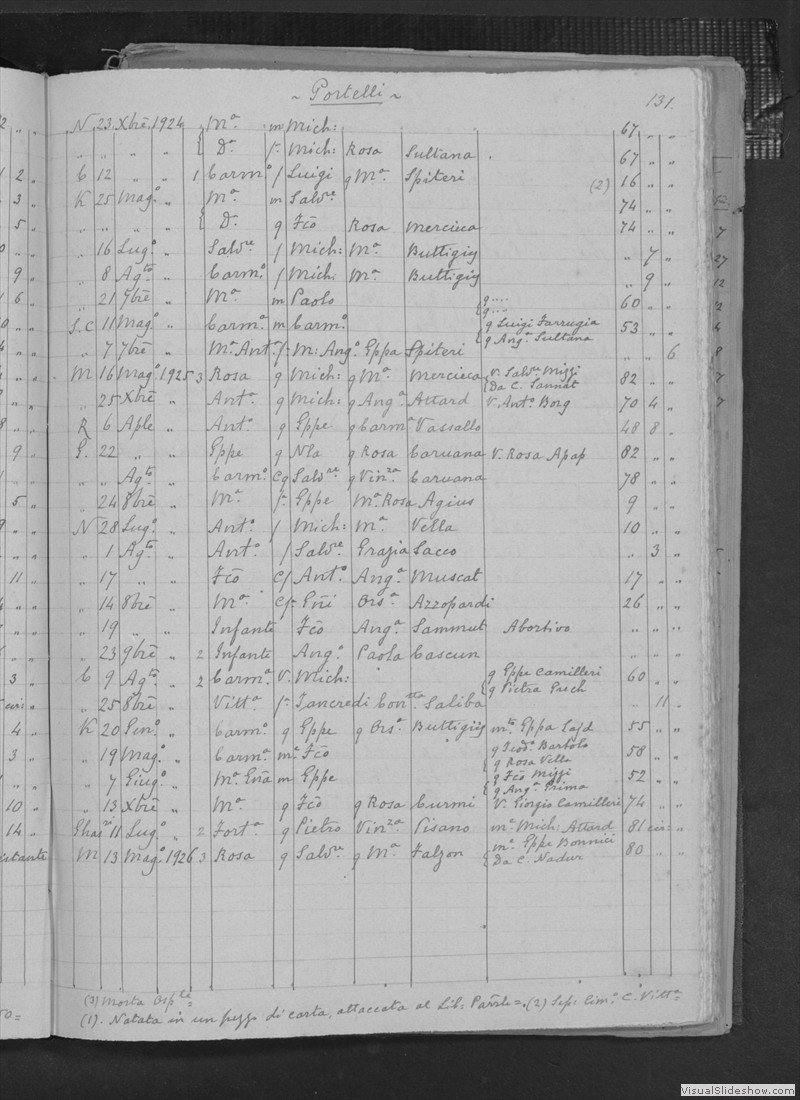 ~ Portelli ~ 131.
N 23 Xbrē 1924 Mª m Mich: 67 „ „
„ „ „ „ { Dª f Mich: Rosa Sultana . 67 „ „
2 „ C 12 „ „ 1 Carmº f Luigi g Mª Spiteri (2) 16 „ „
3 „ K 25 Magº „ Mª m Salvre 74 „ „
5 „ „ „ „ „ { Dª g Fcō Rosa Mercieca 74 „ „
„ 16 Lugº „ Salvre f Mich: Mª Buttigig „ 7 „
9 „ „ 8 Agto „ Carmº f Mich: Mª Buttigig „ 9 „
6 „ „ 21 7brē „ Mª m Paolo { g .... g .... 60 „ „
S.C 11 Magº „ Carmª m Carmº { g Luigi Farrugia g Angª Sultana 53 „ „
„ 7 7brē „ Mª Antª f M: Angº Eppa Spiteri „ „ 6
M 16 Magº 1925 3 Rosa g Mich: g Mª Mercieca { V. Salvre Mizzi Da C. Sannat 82 „ „
„ 25 Xbrē „ Antª g Mich: g Angª Attard V. Antº Borg 70 4 „
R 6 Aple „ Antº g Eppe g Carmª Vassallo 48 8 „
9 „ G. 22 „ „ Eppe g Nla g Rosa Caruana V. Rosa Apap 82 „ „
„ „ Agto „ Carmº Cg Salvre g Vinza Caruana 78 „ „
5 „ „ 24 8brē „ Mª f Eppe Mª Rosa Agius 9 „ „
N 28 Lugº „ Antº f Mich: Mª Vella 10 „ „
„ 1 Agto „ Antº f Salvre Grazia Sacco „ 3 „
11 „ „ 17 „ „ Fcō Cf Antº Angª Muscat 17 „ „
„ 14 8brē „ Mª Cf Gñi Orsª Azzopardi 26 „ „
„ 19 „ „ Infante Fcō Angª Sammut Abortivo „ „ „
„ 23 9brē „ 2 Infante Angº Paola Cascun „ „ „
3 „ C 9 Agto „ 2 Carmª V. Mich: { g Eppe Camilleri g Pietra Grech 60 „ „
„ 25 8brē „ Vittª f Tancredi Contta Saliba „ 11 „
4 „ K 20 Genº „ Carmº g Eppe g Orsª Buttigieg mto Eppa Lajd 55 „ „
3 „ „ 19 Magº „ Carmª mª Fcō { g Teodº Bartolo g Rosa Vella 58 „ „
„ 7 Giugº „ Mª Gñā m Eppe { g Fcō Mizzi g Angª Grima 52 „ „
10 „ „ 13 Xbrē „ Mª g Fcō g Rosa Curmi V. Giorgio Camilleri 74 „ „
14 „ Ghasri 11 Lugº „ 2 Fortª g Pietro Vinza Pisano mª Mich: Attard 81 cir: „
M 13 Magº 1926 3 Rosa g Salvre g Mª Falzon { mª Eppe Bonnici Da C. Nadur 80 „ „
(3) Morta Osple =
(1). Notata in un pezzo di carta, attaccata al Lib: Parrle =. (2) Sep: Cimº C. Vittª
VisualSlideshow.com